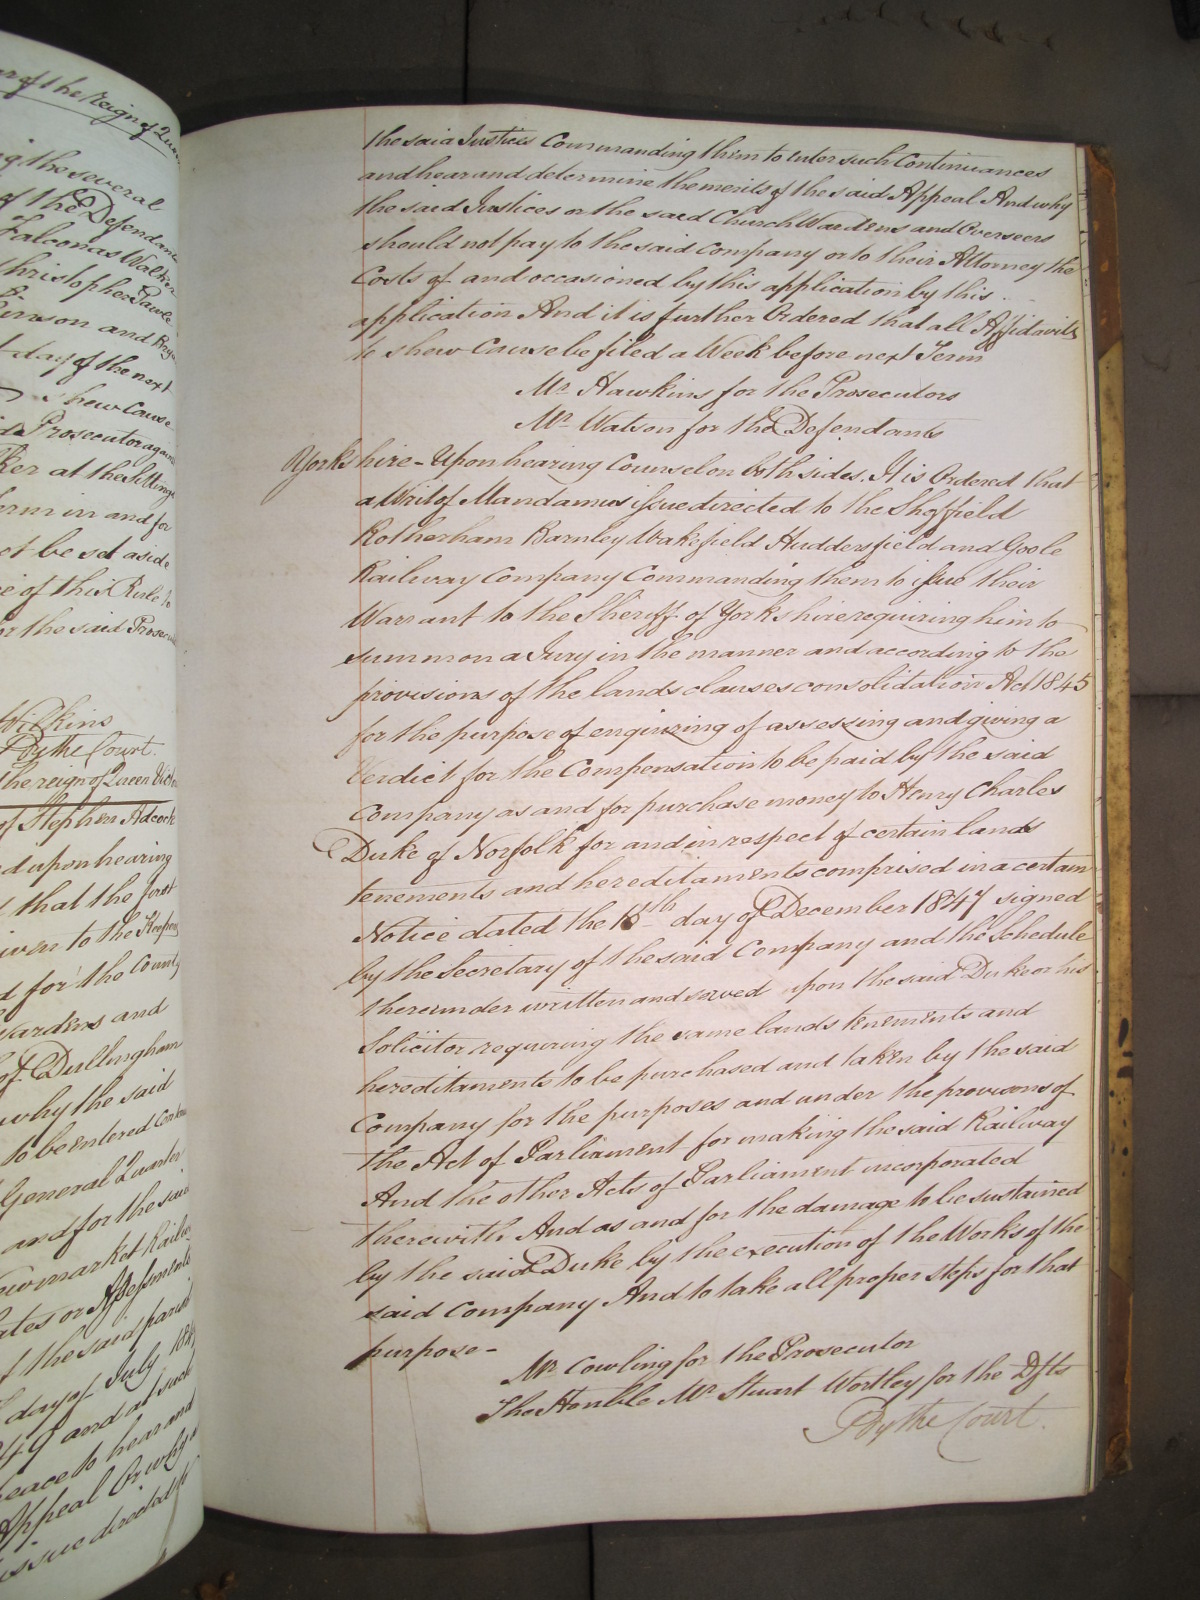 ar of the reign of Queen
g the several
of the Defendant
Falconas Walker
Christopher Sawle
inson and
t day of the next
Shew Cause
Prosecutor again
ker at the Sittings
erm in and for
ot be set aside
ce of this Rule to
or the said Prosecu
Wilkins
By the Court.
the reign of Queen Victo
of Stephen Adcock
d upon hearing
d that the first
iven to the Keepers
d for the County
Wardens and
of Dullingham
why the said
to be entered Contin
General Quarter
and for the said
ewmarket Railw
ates or Assessments
f the said parish
day of July 184
49 and at such
eace to hear and
Appeal Or why a
issue directed to
the said Justices Commanding them to enter such Continuances
and hear and determine the merits of the said Appeal And why
the said Justices or the said Church Wardens and Overseers
should not pay to the said Company or to their Attorney the
Costs of and occasioned by this application by this
application And it is further Ordered that all Affidavits
to shew Cause be filed a Week before next Term
Mr Hawkins for the Prosecutors
Mr Watson for the Defendants
Yorkshire - Upon hearing Counsel on both sides. It is Ordered that
a Writ of Mandamus issue directed to the Sheffield
Rotherham Barnley Wakefield Huddersfield and Goole
Railway Company Commanding them to issue their
Warrant to the Sheriff of Yorkshire requiring him to
summon a Jury in the manner and according to the
provisions of the lands clauses consolidation Act 1845
for the purpose of enquiring of assessing and giving a
Verdict for the Compensation to be paid by the said
Company as and for purchase money to Henry Charles
Duke of Norfolk for and in respect of certain lands
tenements and hereditaments comprised in a certain
Notice dated the th day of December 1847 signed
by the Secretary of the said Company and the Schedule
thereunder written and served upon the said Duke or his
Solicitor requiring the same lands tenements and
hereditaments to be purchased and taken by the said
Company for the purposes and under the provisions of
the Act of Parliament for making the said Railway
And the other Acts of Parliament incorporated
therewith And as and for the damage to be sustained
by the said Duke by the execution of the Works of the
said Company And to take all proper steps for that
purpose -
Mr Cowling for the Prosecutor
The Honble Mr Stuart Wortley for the Dfts
By the Court.